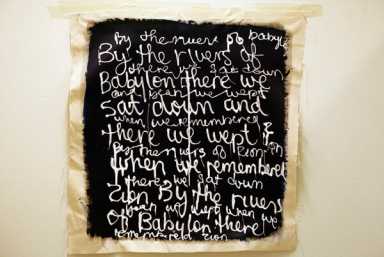 By the rivers of babyl
By the rivers of
there we sat down
Babylon there we
and yeah we wept
sat down and
when we remembered
there we wept
by the rivers of
when we remembered
there we sat down
Zion By the rivers
yeah we wept when we
of Babylon there
remembered zion